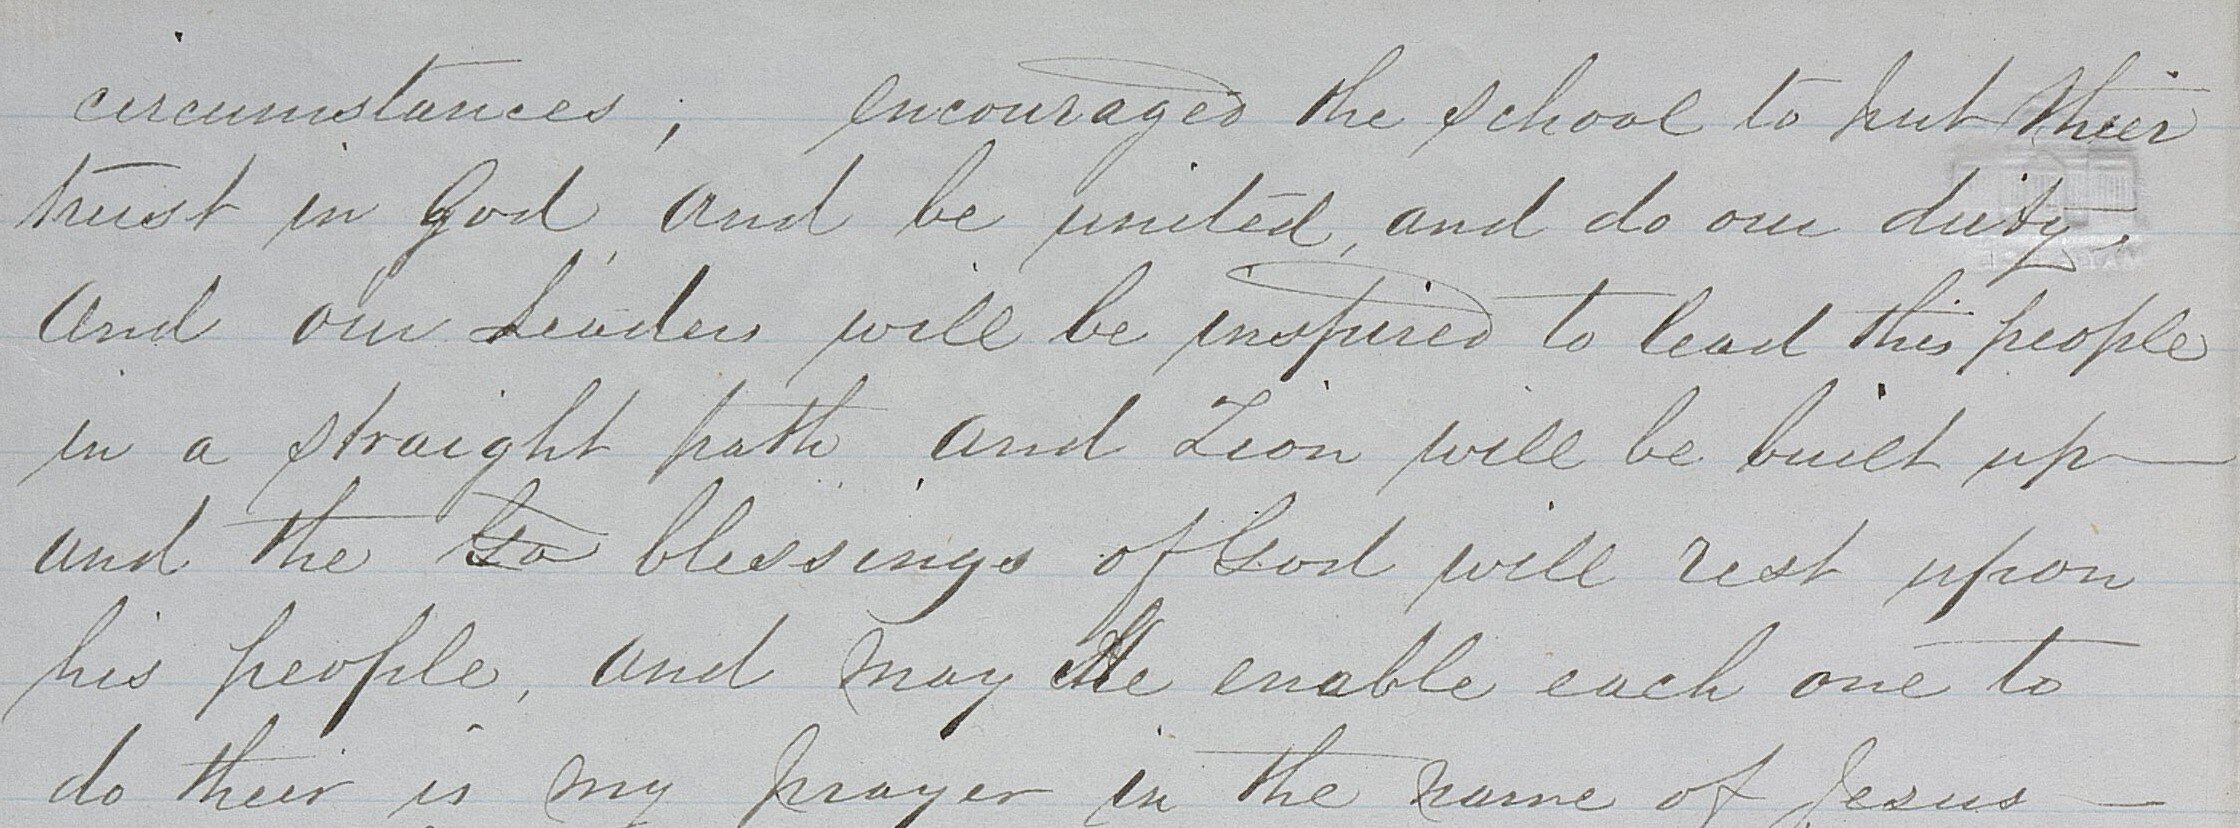 circumstances; encouraged the school to put their
trust in God, and be united, and do our duty,
and our Leaders will be inspired to lead this people
in a straight path and Zion will be built up—
and the Go blessings of God will rest upon
his people, and may He enable each one to
do their is my prayer in the name of Jesus—